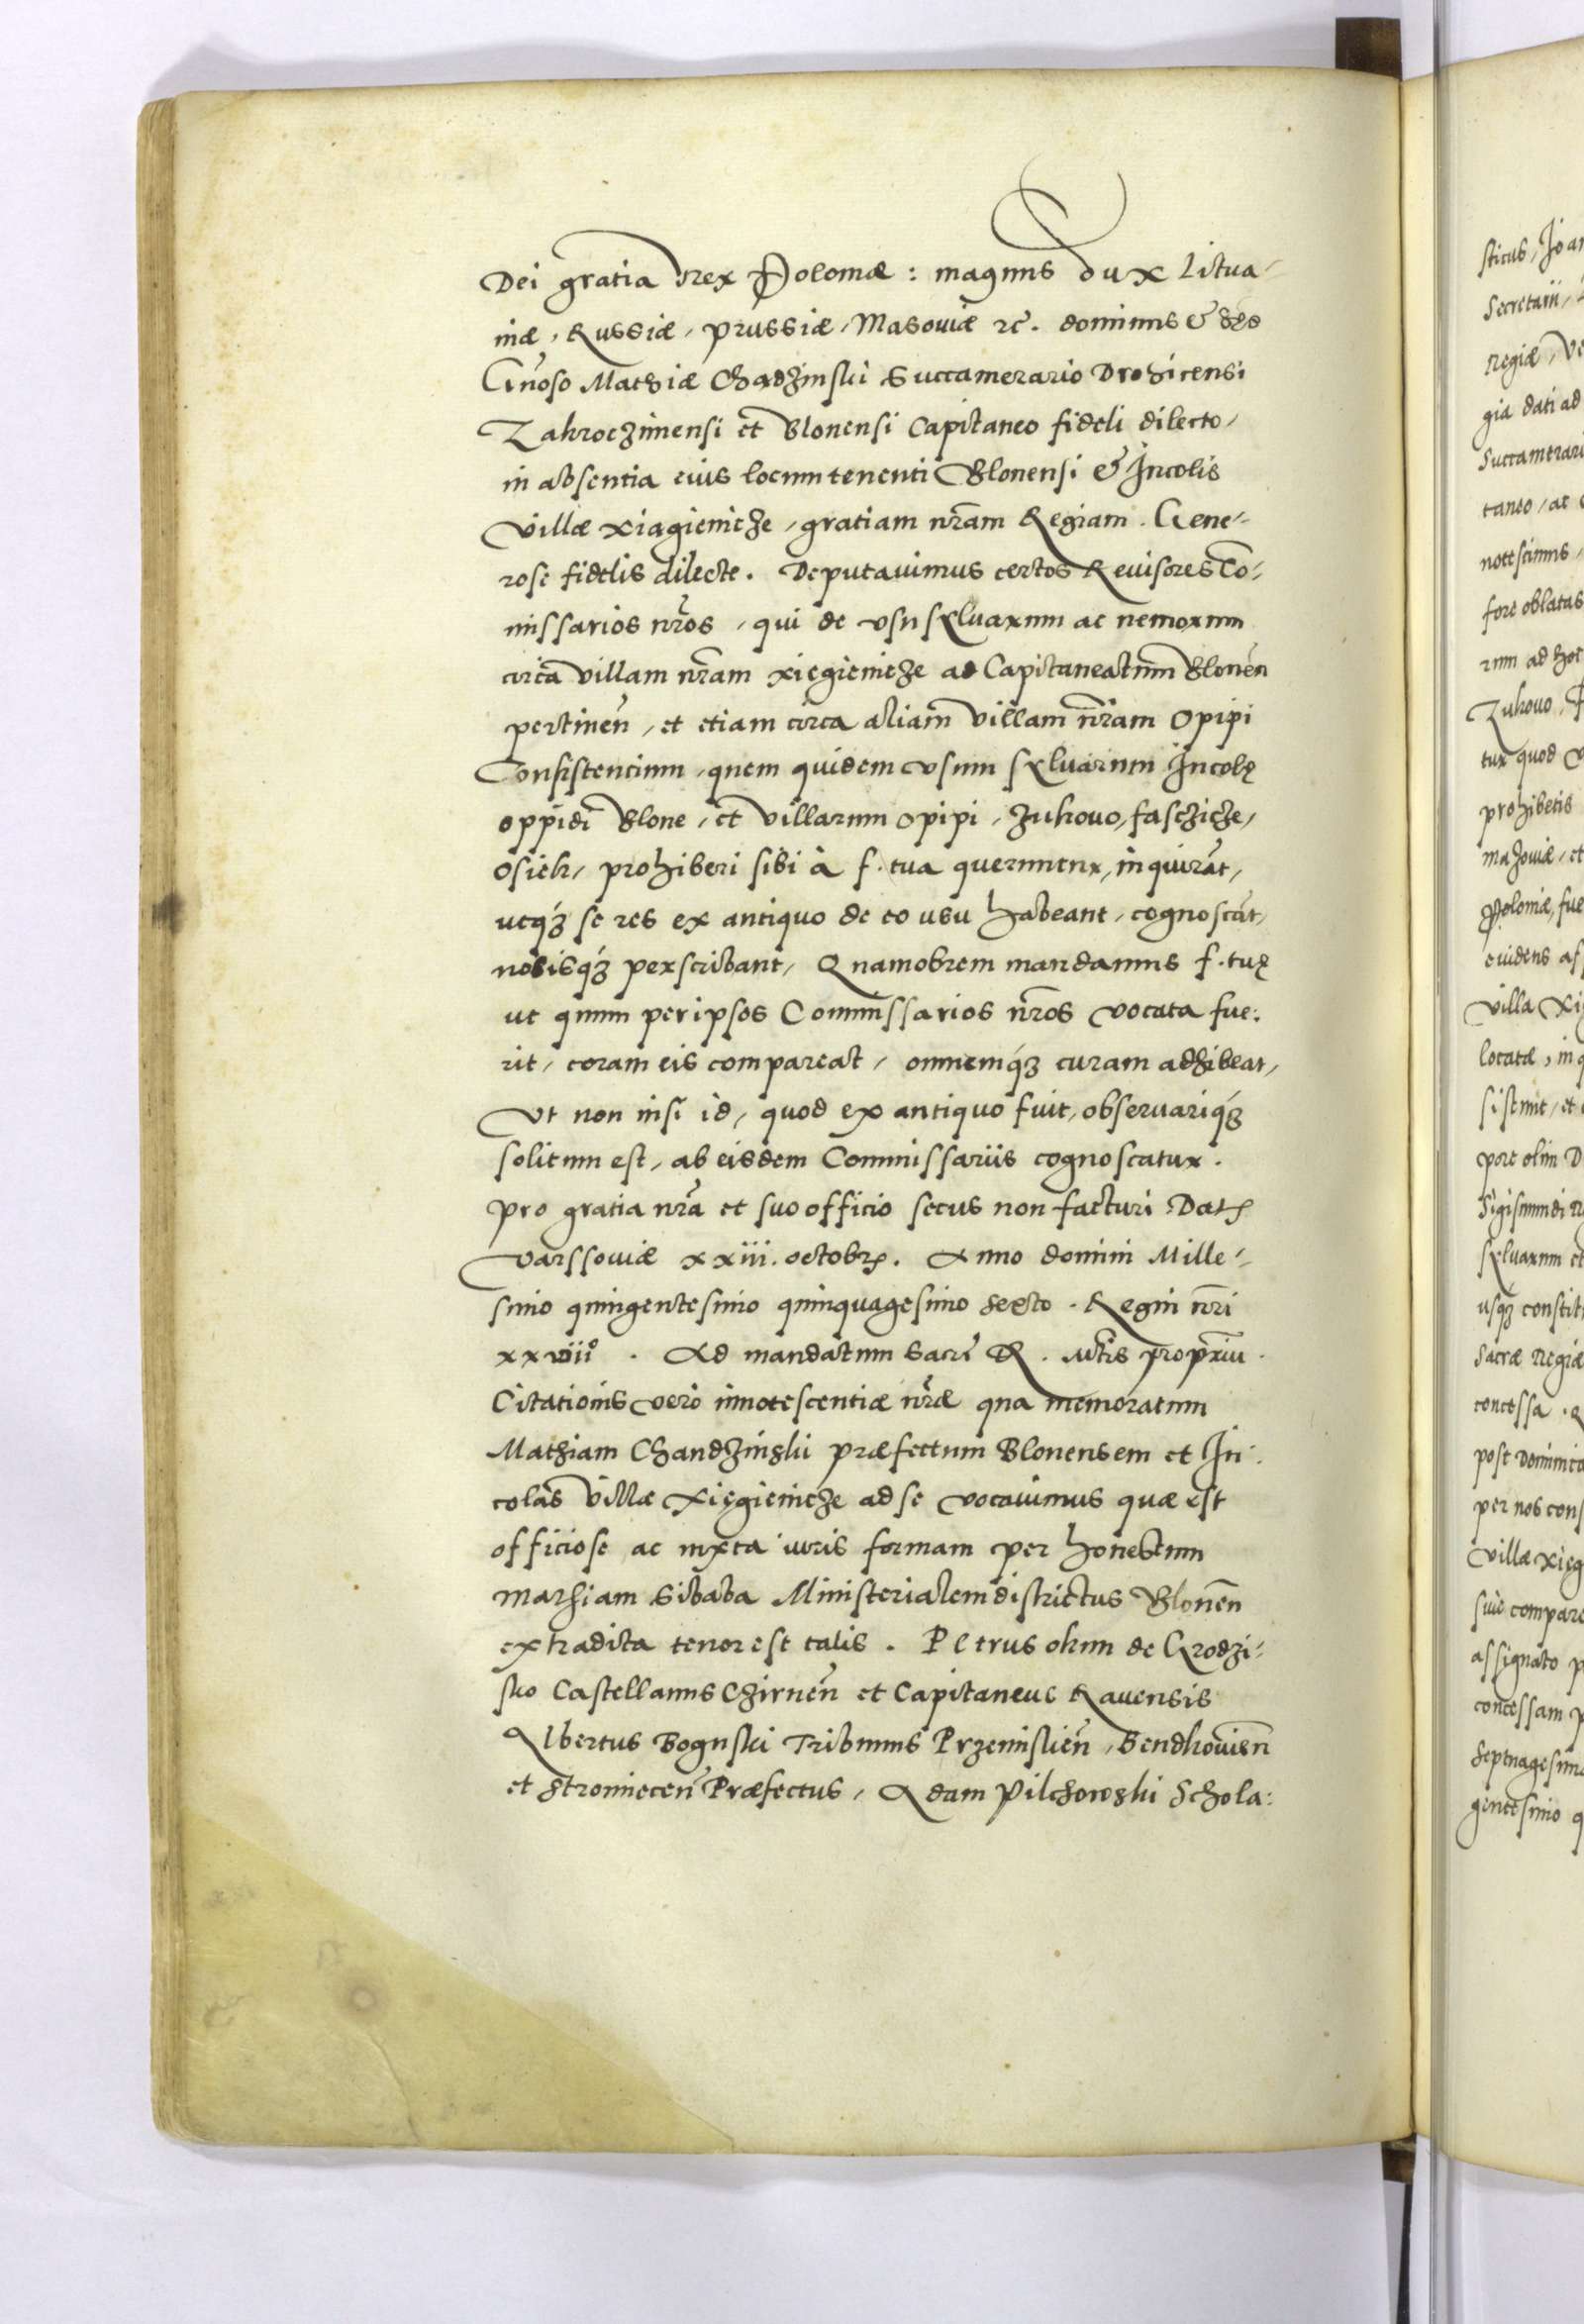 Dei gratia Rex Poloniæ : magnus dux Litua-
niæ, Russiæ, prussiæ, Masouiæ zc̃. dominus & hęs
Gñoso Mathiæ Chądzinski Succamerario Drohicensi
Zakroczimensi et Blonensi Capitaneo fideli dilecto,
in absentia eius locumtenenti Blonensi & Incolis
Villæ xiągienicze, gratiam nr̃am Regiam. Gene-
rose fidelis dilecte. Deputauimus certos Reuisores Co-
missarios nr̃os, qui de vsu syluarum ac nemorum
circa villam nr̃am xięgienicze ad Capitaneatum Blonen̄
pertinen̄, et etiam circa aliam villam nr̃am Opipi
Consistentium, quem quidem vsum syluarum Incolę
oppidi Blone, et villarum Opipi, zukouo, fasczicze,
Osiek, prohiberi sibi à f. tua queruntur, inquirãt,
utqʒ se res ex antiquo de eo usu habeant, cognoscãt,
nobisqʒ perscribant, Quamobrem mandamus f. tuę
ut quum per ipsos Commissarios nr̃os vocata fue:
rit, coram eis compareat, omnemqʒ curam adhibeat,
Vt non nisi id, quod ex antiquo fuit, obseruariqʒ
solitum est, ab eisdem Commissariis cognoscatur.
pro gratia nr̃a et suo officio secus non facturi. Datꝭ
Varssouiæ xxiii. octobrꝭ. Anno domini Mille-
simo quingentesimo quinquagesimo sexto. Regni nr̃i
xxviiº. Ad mandatum Sacrę R. Mtis propriũ.
Citationis vero innotescentiæ nr̃æ qua memoratum
Mathiam Chandzinski præfectum Blonensem et In:
colas villæ Xięgienicze ad se vocauimus quæ est
officiose ac iuxta iuris formam per honestum
mathiam Sibaba Ministerialem districtus Blonen̄
extradita tenor est talis. Petrus okun de Grodzi-
sko Castellanus Czirnen̄ et Capitaneus Rauensis
Albertus Boguski Tribunus Przemislien̄, Bendkouien̄
et Stromiecen̄ Præfectus, Adam Pilchowski Schola:
sticus, Joan
Secretarii,
Regiæ, Ve
gia dati ad
Succamerari
taneo, ac
notescimus,
fore oblatas
rum ad hoc
Zukouo,
tur quod
prohibetis
mazouiæ, et
Poloniæ, fue
euidens as
villa Xi
locatæ, in q
sistunt, et
pore olim D
Sigismundi R
syluarum et
usqʒ constit
Sacræ Regiæ
concessa.
post Dominica
per nos cons
villæ xięg
siue compare
assignato p
concessam p
septuagesima
gentesimo q